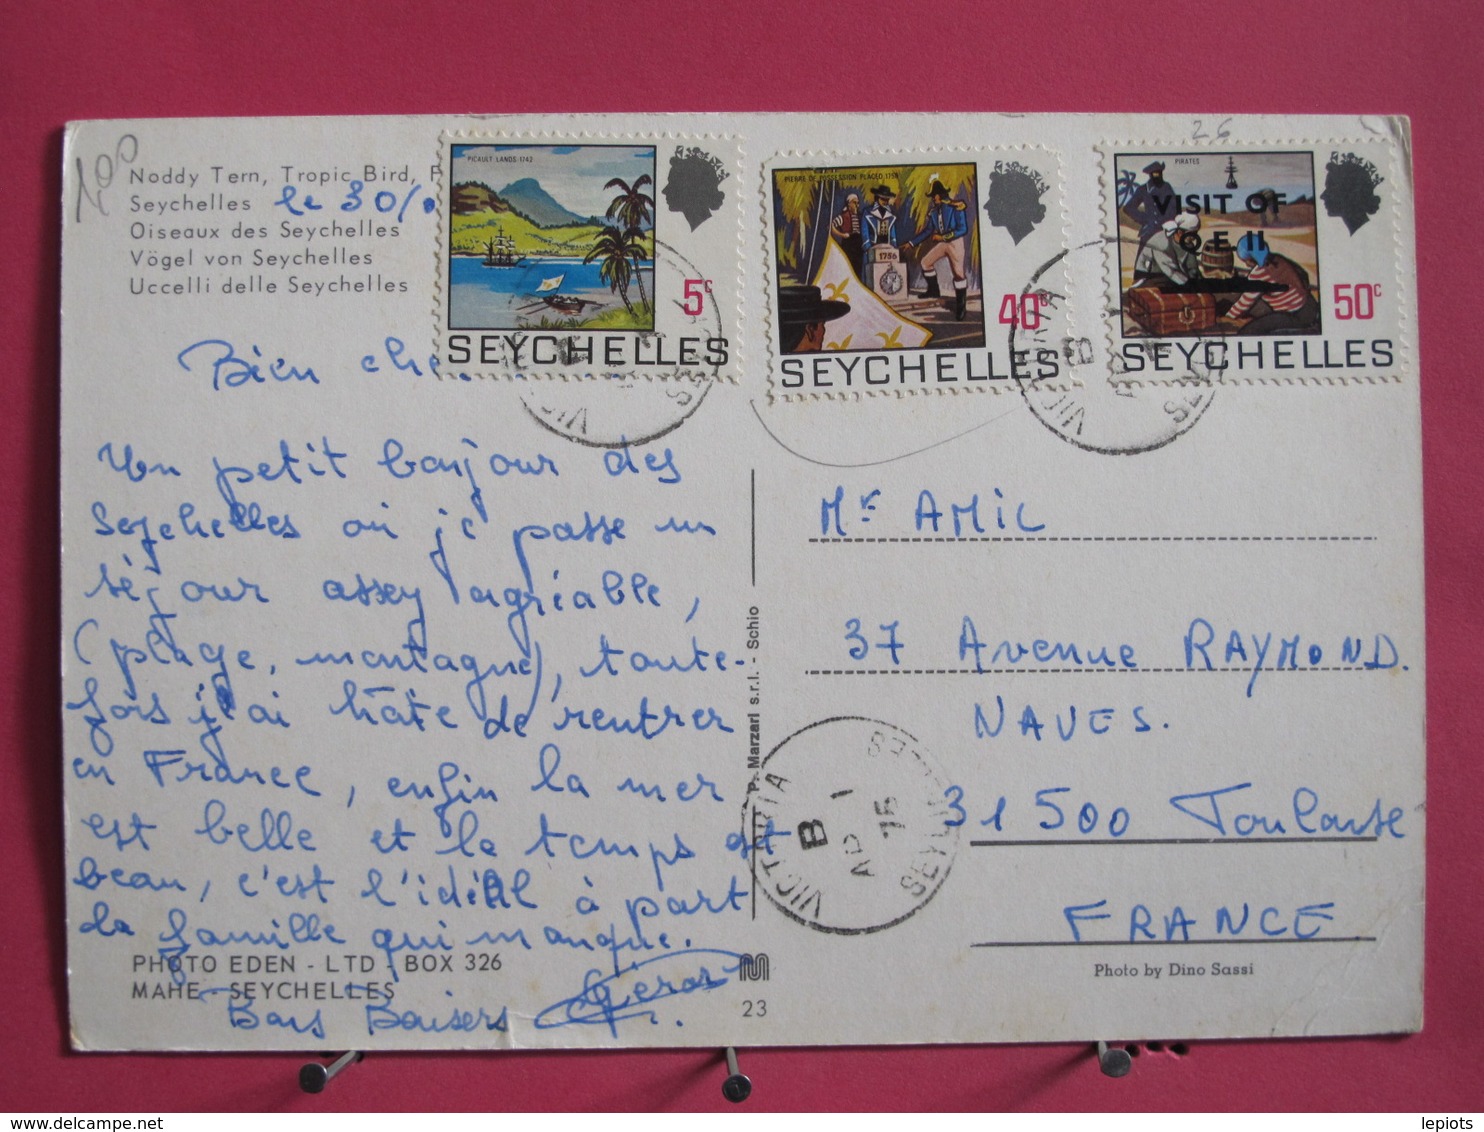 100
26
Noddy Tern, Tropic Bird, F
Seychelles le 30/
Oiseaux des Seychelles
Vögel von Seychelles
Uccelli delle Seychelles
PICAULT LANDS 1742
5c
SEYCHELLES
PIERRE OF POSSESSION PLACED 1756
1756
40c
SEYCHELLES
PIRATES
VISIT OF
Q.E II
50c
SEYCHELLES
VICTORIA
B
SEYCHELLES
Bien che
Un petit bonjour des
Seychelles où je passe un
séjour assez agréable,
(plage, montagne), toute-
fois j'ai hâte de rentrer
en France, enfin la mer
est belle et le temps est
beau, c'est l'idéal à part
la famille qui manque.
Bons Baisers
PHOTO EDEN - LTD - BOX 326
MAHE - SEYCHELLES
P. Marzari s.r.l. - Schio
23
Mr AMIC
37 Avenue RAYMOND
NAVES.
31500 Toulouse
FRANCE
VICTORIA
B
AP 1
75
SEYCHELLES
Photo by Dino Sassi
lepiots